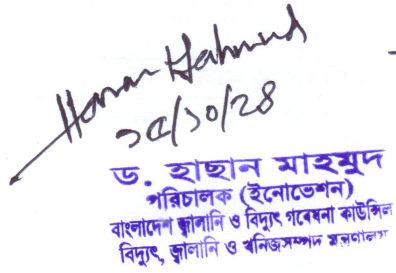 Hasan Mahmud
১৫/১০/২৪
ড. হাছান মাহমুদ
পরিচালক (ইনোভেশন)
বাংলাদেশ জ্বালানি ও বিদ্যুৎ গবেষনা কাউন্সিল
বিদ্যুৎ, জ্বালানি ও খনিজসম্পদ মন্ত্রণালয়